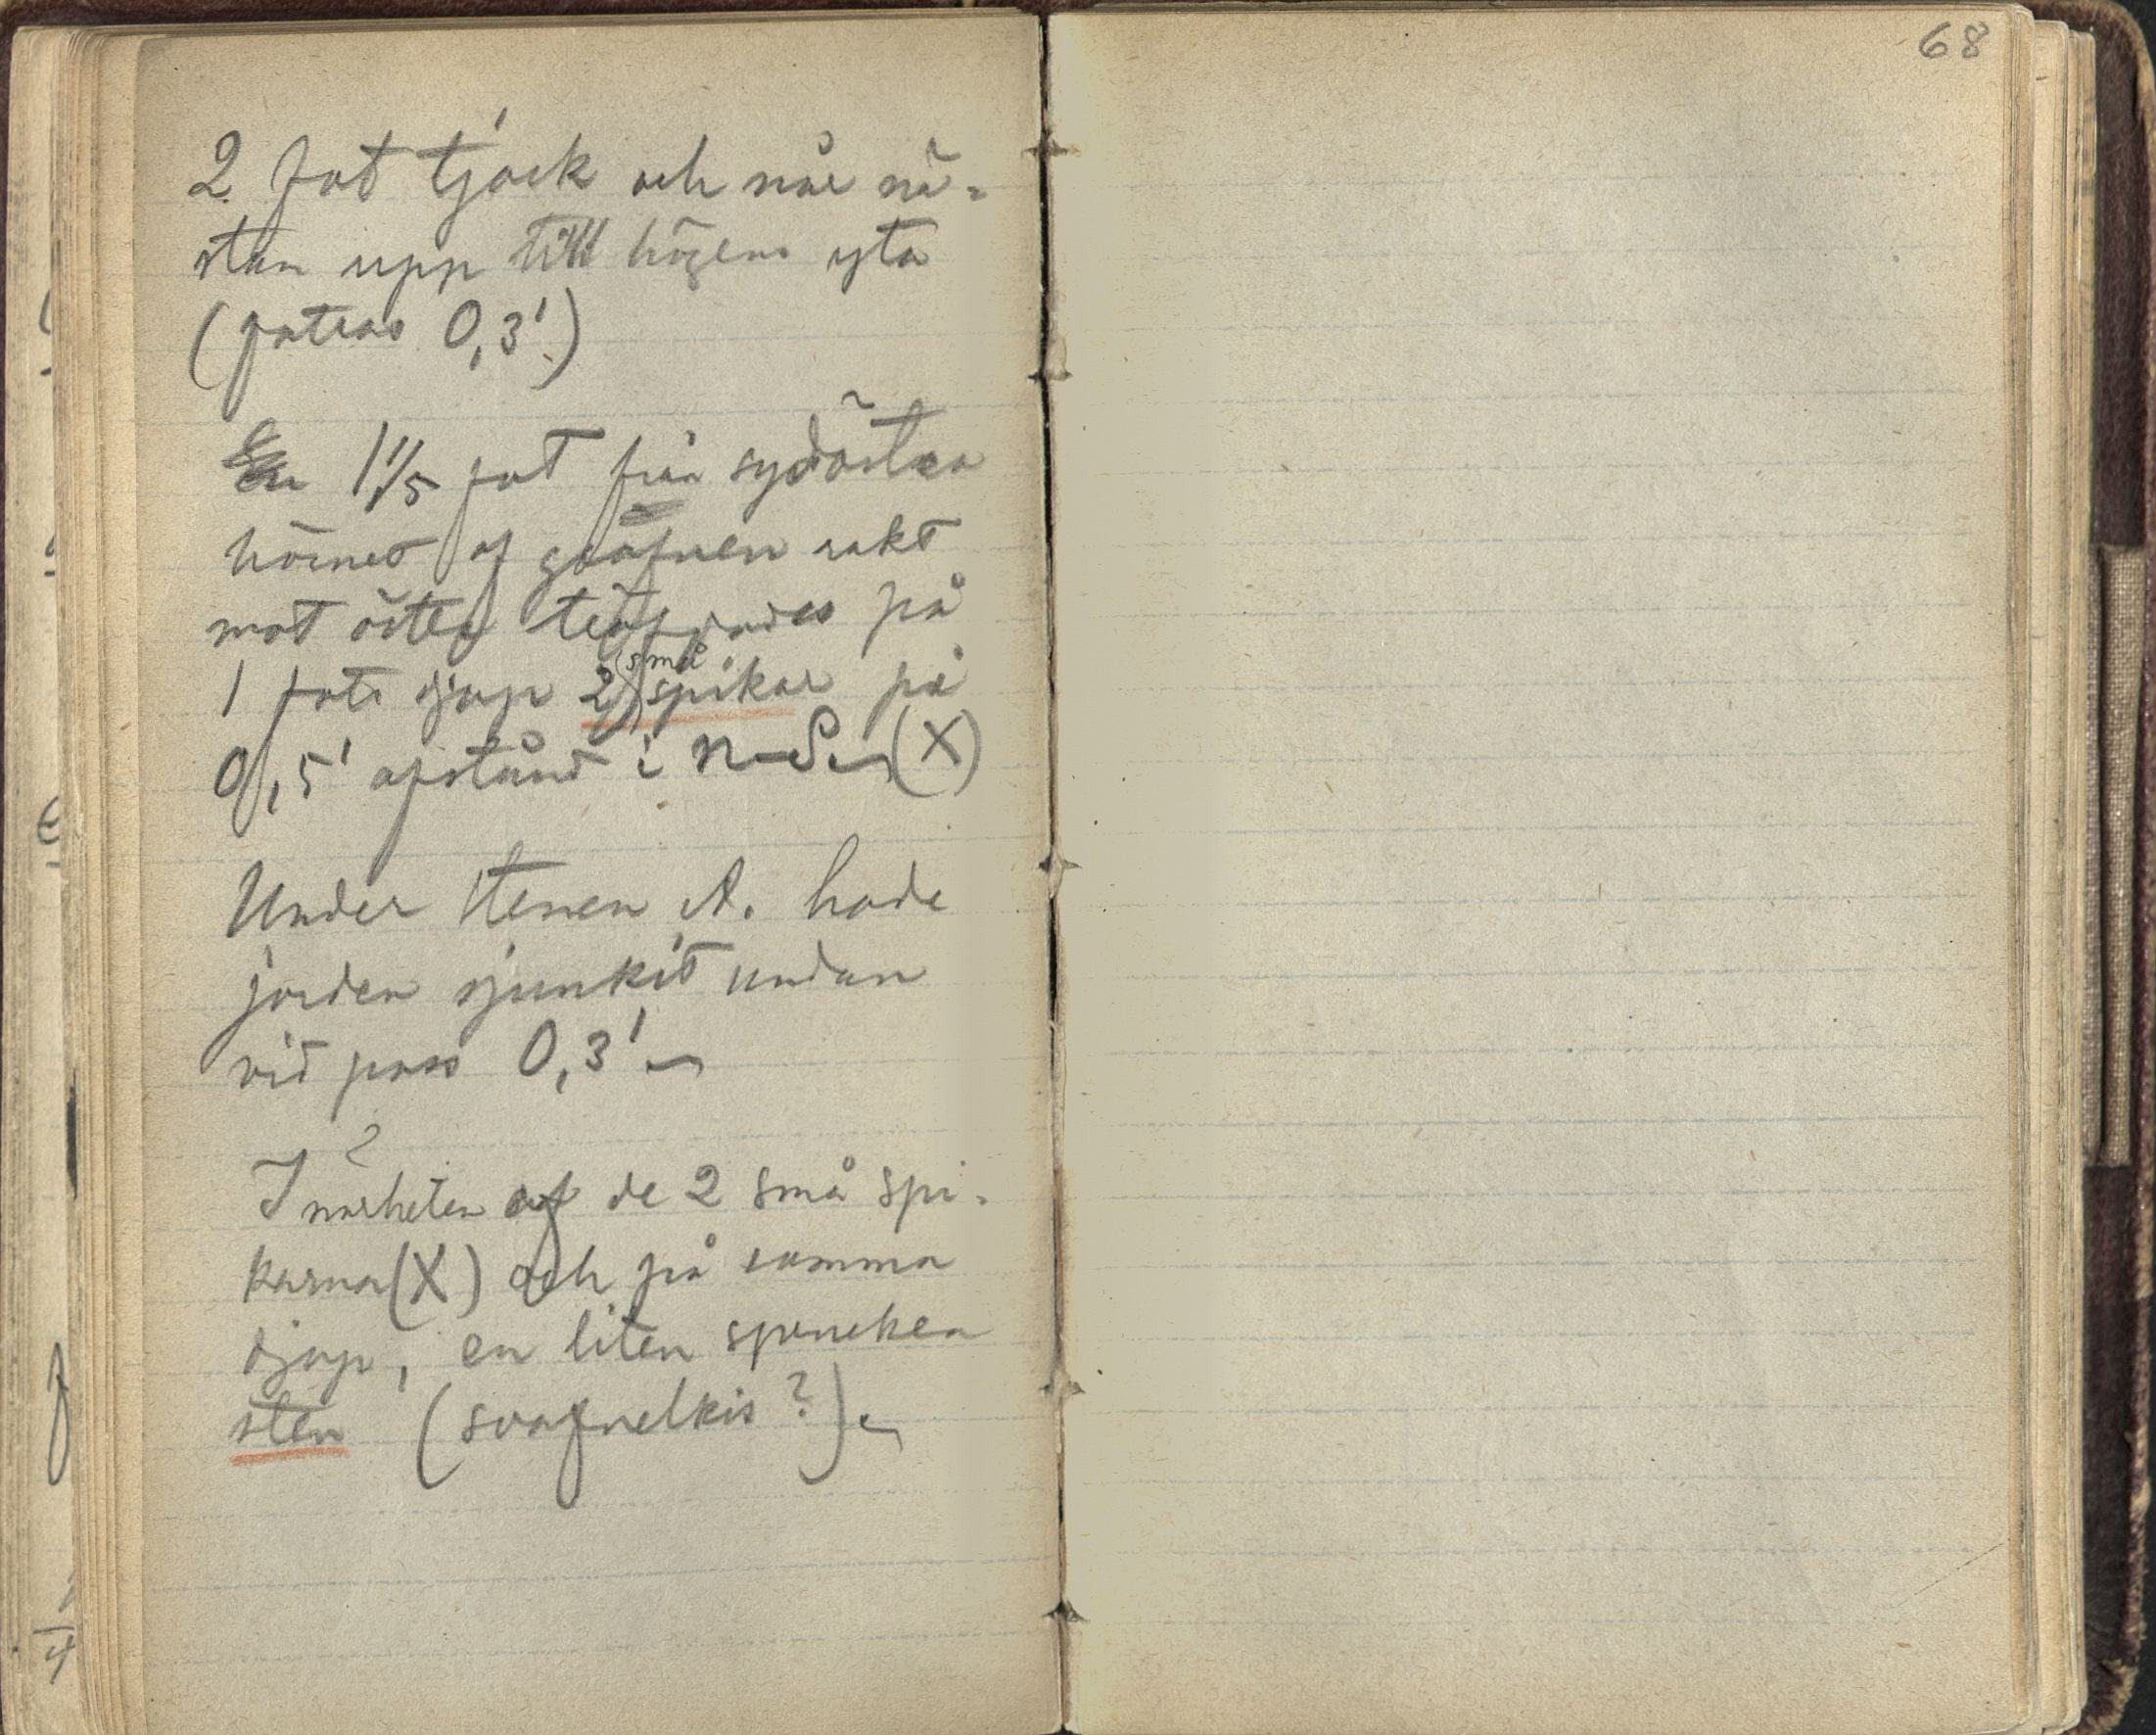 68
2 fot tjock och når nä-
stan upp till högens yta
(fattas 0,3')
En 1 1/5 fot från sydöstra
hörnet af gräfnen rakt
mot öster träffades på
1 fots djup 2 små spikar på
0,5' afstånd i n-S. (X)
Under stenen A. hade
jorden sjunkit undan
vid pass 0,3'
I närheten af de 2 små spi-
karna (X) och på samma
djup, en liten sprucken
sten (svafvelkis?).